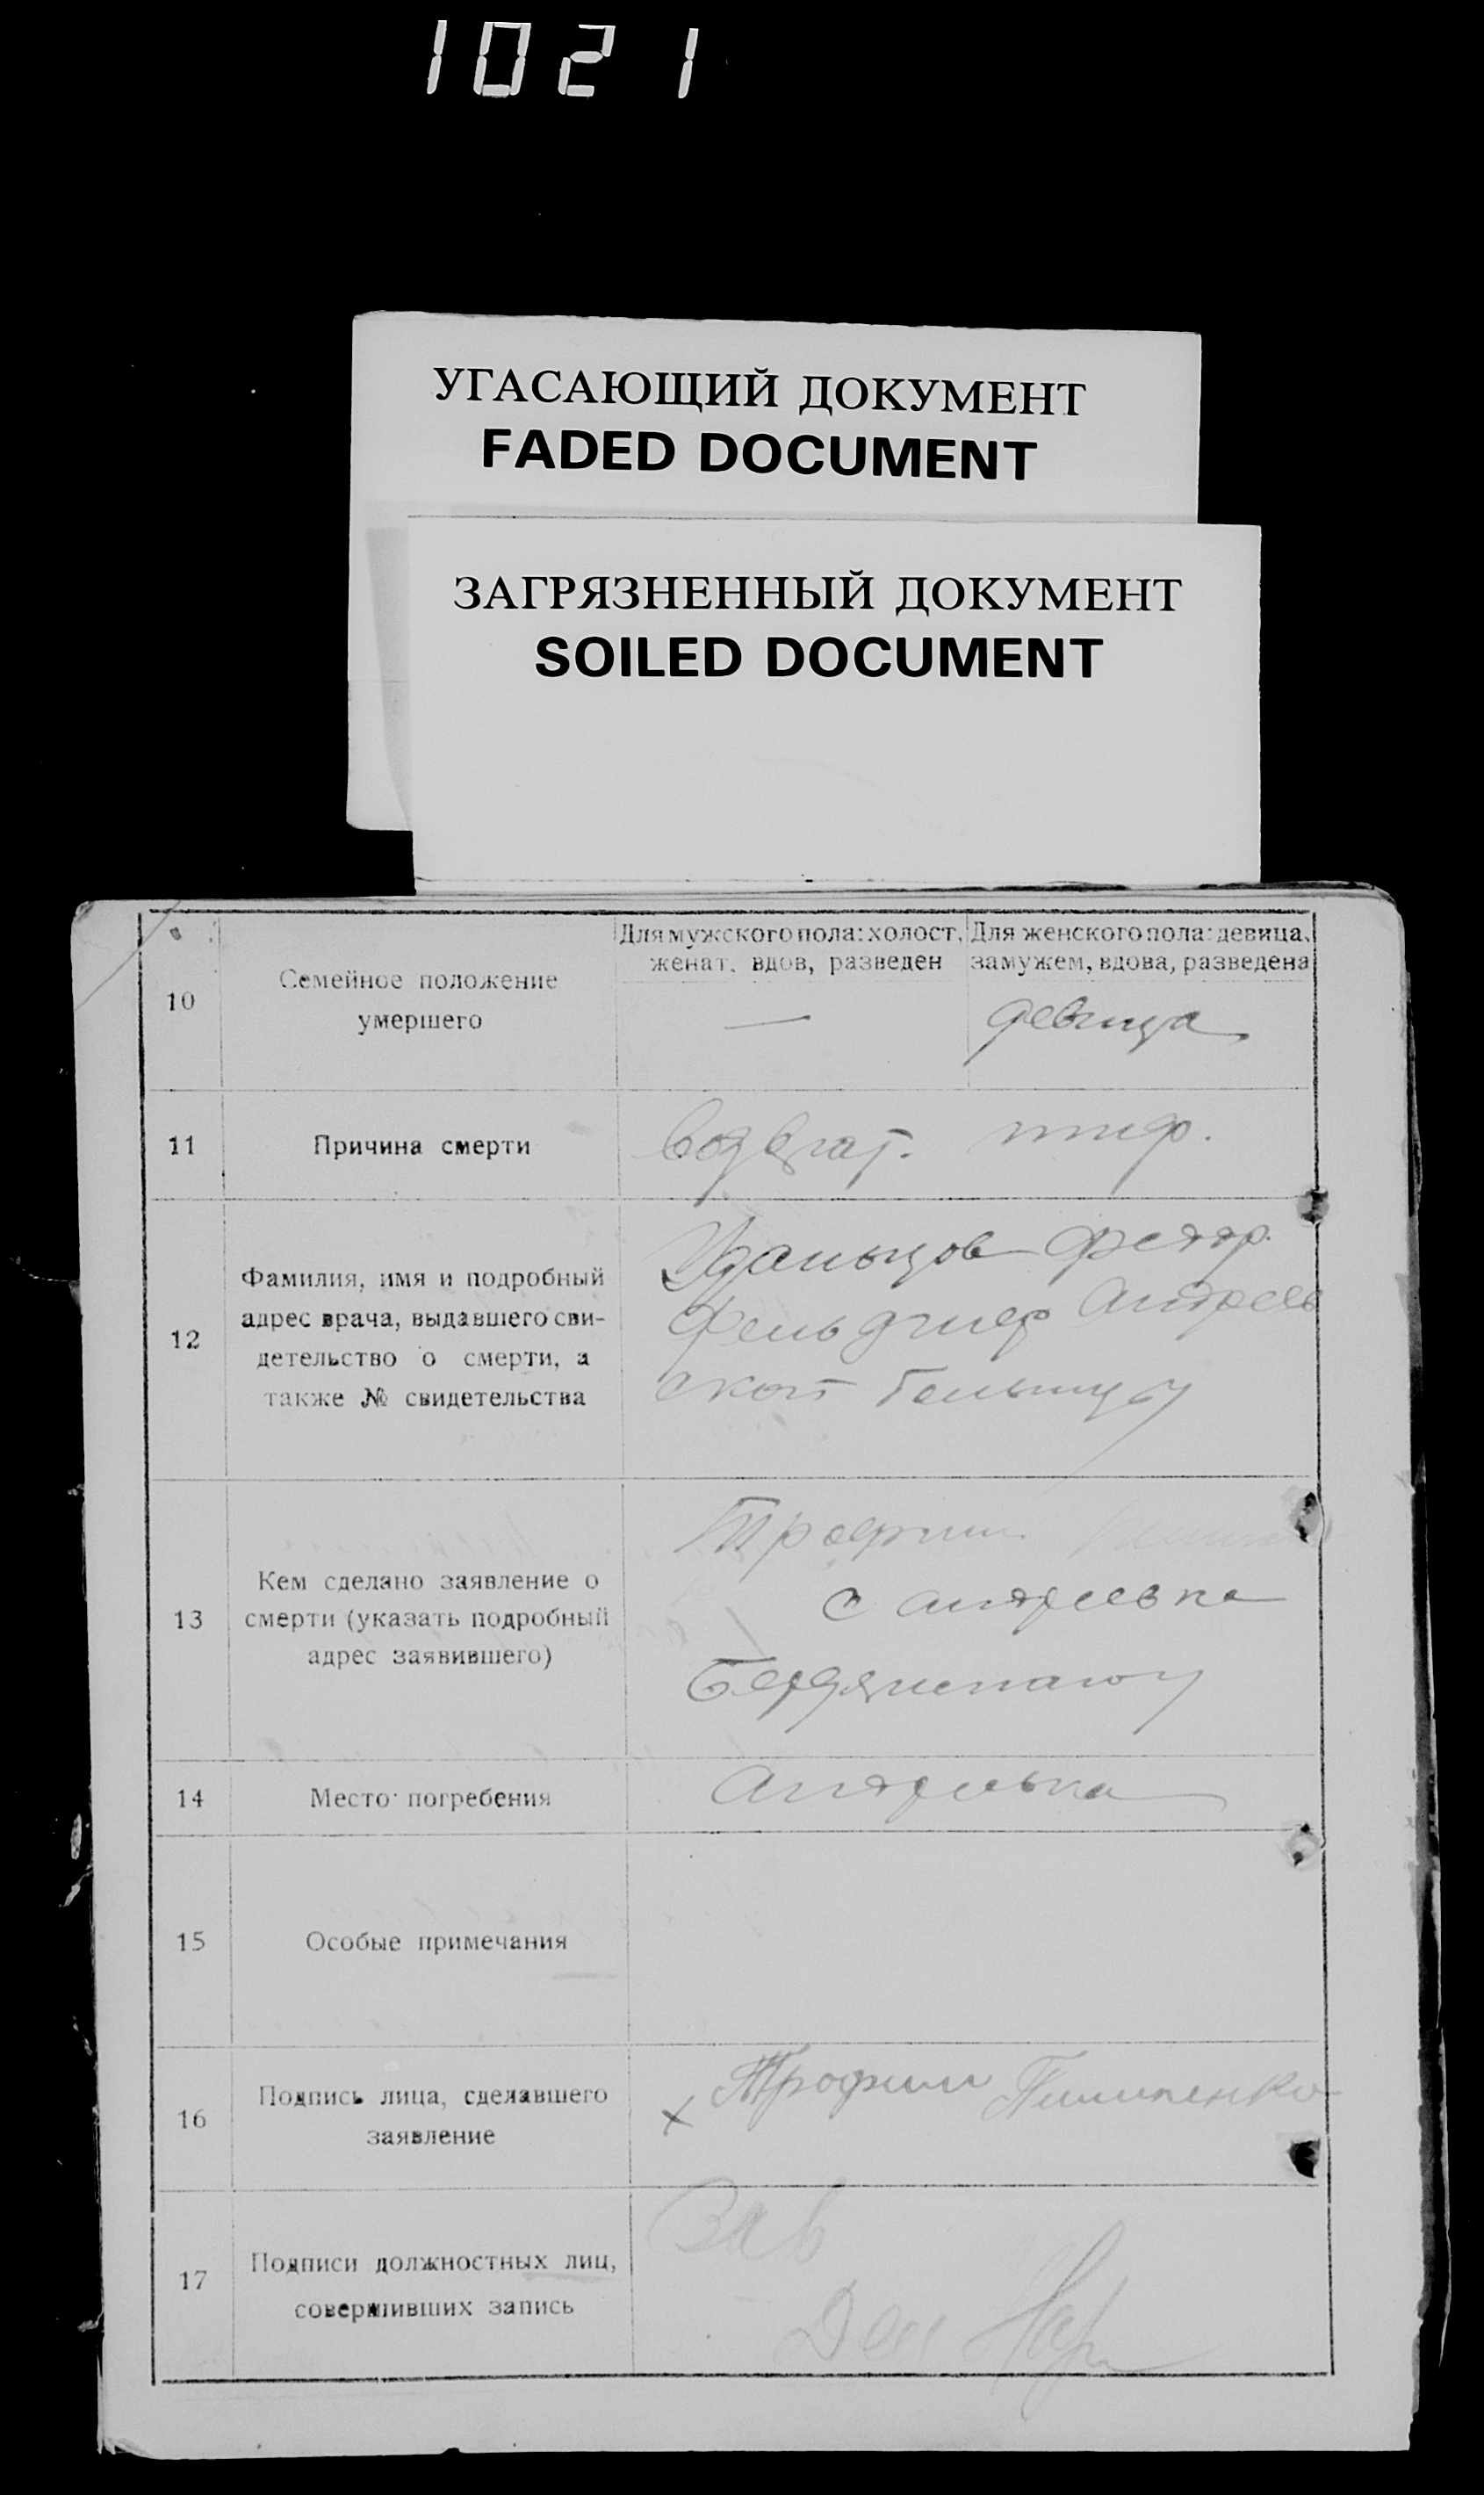 1021
УГАСАЮЩИЙ ДОКУМЕНТ
FADED DOCUMENT
ЗАГРЯЗНЕННЫЙ ДОКУМЕНТ
SOILED DOCUMENT
10
Семейное положение
умершего
Для мужского пола: холост,
женат, вдов, разведен
Для женского пола: девица,
замужем, вдова, разведена
—
девица
11
Причина смерти
возврат. тиф.
12
Фамилия, имя и подробный
адрес врача, выдавшего сви-
детельство о смерти, а
также № свидетельства
Федор.
Фельдшер Андреев
ской больницы
13
Кем сделано заявление о
смерти (указать подробный
адрес заявившего)
Трофим
с Андреевка
14
Место погребения
Андреевка
15
Особые примечания
16
Подпись лица, сделавшего
заявление
× Трофим Пилипенко
17
Подписи должностных лиц,
совершивших запись
Зав